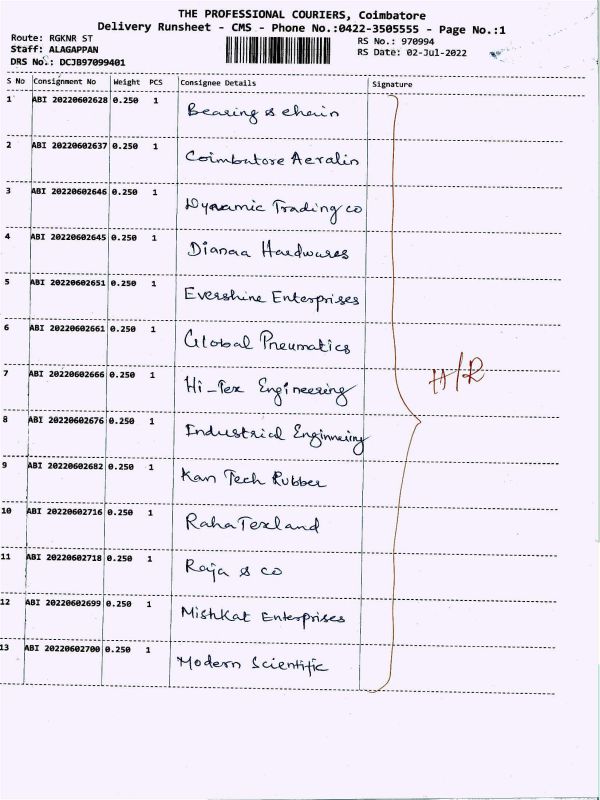 THE PROFESSIONAL COURIERS, Coimbatore
Delivery Runsheet - CMS - Phone No.:0422-3505555 - Page No.:1
Route: RGKNR ST
Staff: ALAGAPPAN
DRS No.: DCJB97099401
RS No.: 970994
RS Date: 02-Jul-2022
S No Consignment No Weight PCS Consignee Details Signature
1 ABI 20220602628 0.250 1 Bearing & chain
2 ABI 20220602637 0.250 1 Coimbatore Aeralin
3 ABI 20220602646 0.250 1 Dynamic Trading co
4 ABI 20220602645 0.250 1 Dianaa Hardwares
5 ABI 20220602651 0.250 1 Evershine Enterprises
6 ABI 20220602661 0.250 1 Global Pneumatics
7 ABI 20220602666 0.250 1 Hi-Tex Engineering
H/R
8 ABI 20220602676 0.250 1 Industrial Enginnering
9 ABI 20220602682 0.250 1 Kan Tech Rubber
10 ABI 20220602716 0.250 1 Raha Texland
11 ABI 20220602718 0.250 1 Raja & co
12 ABI 20220602699 0.250 1 Mishkat Enterprises
13 ABI 20220602700 0.250 1 Modern Scientific